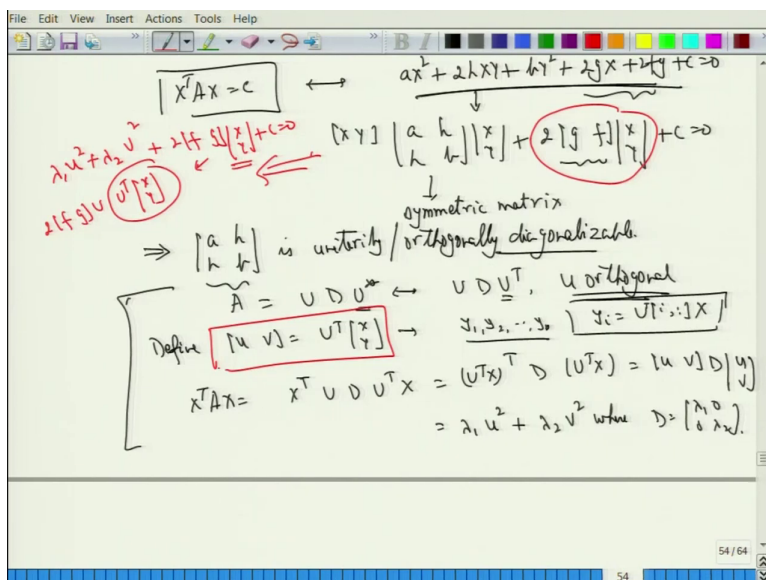 File Edit View Insert Actions Tools Help
X^T A X = C ↔ ax^2 + 2hxy + by^2 + 2gx + 2fy + c = 0
λ₁u^2 + λ₂v^2 + 2[f g][x y] + c = 0
[x y] [a h h b] [x y] + 2[g f] [x y] + c = 0
2[f g] U U^T [x y]
symmetric matrix
⇒ [a h h b] is unitarily / orthogonally diagonalizable.
A = U D U^* ↔ U D U^T, U orthogonal
Define [u v] = U^T [x y] → y₁, y₂, ..., yₙ ) yᵢ = U[i,:] X
X^T A X = X^T U D U^T X = (U^T X)^T D (U^T X) = [u v] D [u v]
= λ₁u^2 + λ₂v^2 where D = [λ₁ 0 0 λ₂].
54 / 64
54